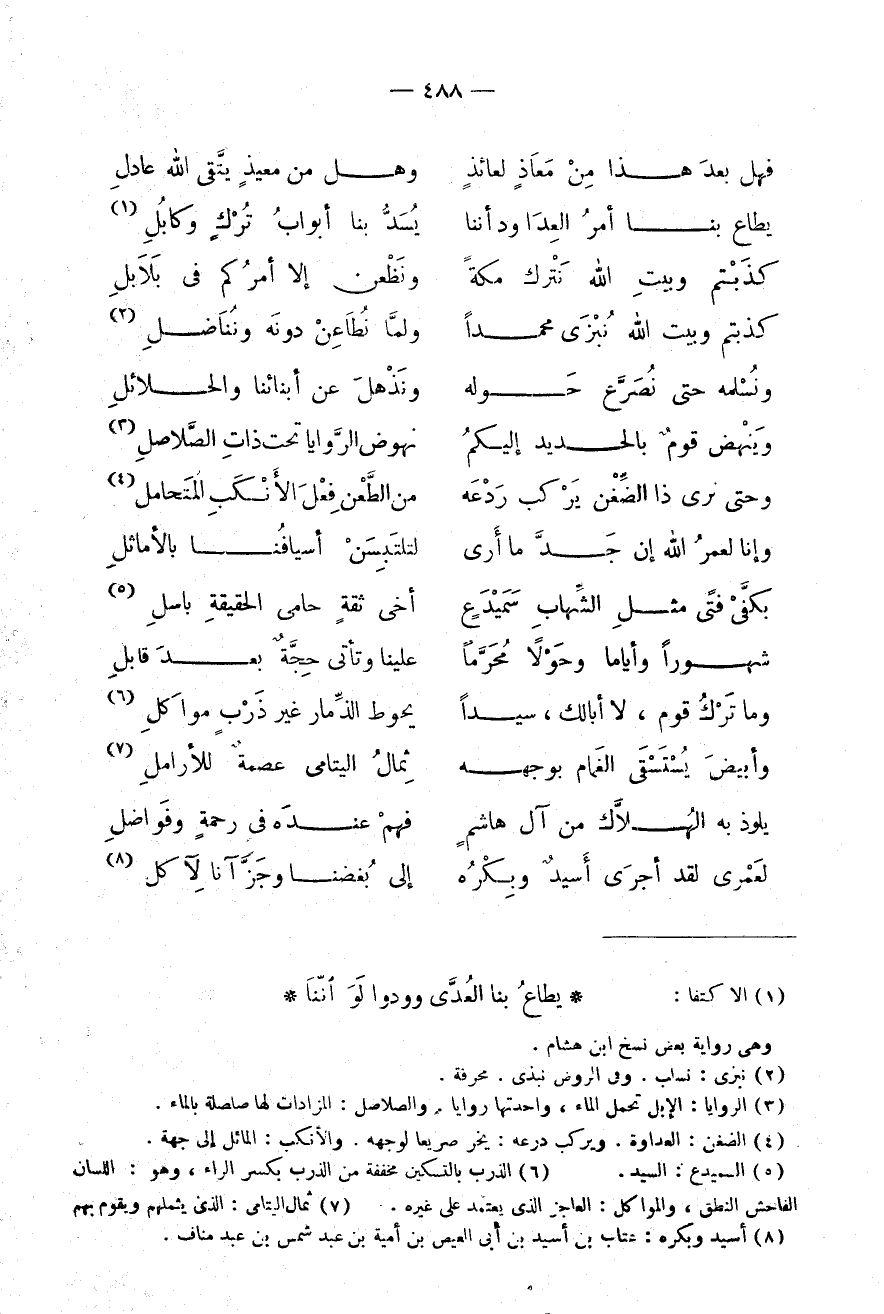 — ٤٨٨ —
فهل بعدَ هذا مِنْ مَعَاذٍ لعائذٍ وهل من معيذٍ يتَّقى الله عادلِ
يطاع بنا أمرُ العِدَا ودأننا يُسَدُّ بنا أبوابُ تُرْكٍ وكابُلِ (١)
كذَبْتم وبيتِ الله نَتْرك مكةً ونَظْعن إلا أمرُكم فى بَلَابلِ
كذبتم وبيت الله نُبْزَى محمداً ولمَّا نُطَاعِنْ دونَه ونُنَاضلِ (٢)
ونُسْلمه حتى نُصَرَّع حَوله ونَذْهلَ عن أبنائنا والحلائلِ
ويَنْهض قومٌ بالحديد إليكمُ نهوض الرَّوايا تحت ذاتِ الصَّلاصلِ (٣)
وحتى نرى ذا الضِّغْن يَرْكب رَدْعَه من الطَّعْن فِعْلَ الأَنْكَبِ المُتَحامل (٤)
وإنا لعمرُ الله إن جَدَّ ما أَرى لتلتَبِسَنْ أسيافُنا بالأماثلِ
بكفَّىْ فتًى مثلِ الشِّهابِ سَمَيْدَعٍ أخى ثقةٍ حامى الحقيقةِ باسلِ (٥)
شهوراً وأياما وحَوْلًا مُحَرَّماً علينا وتأتى حِجَّةٌ بعدَ قابلِ
وما تَرْكُ قوم ، لا أبالك ، سيداً يحوط الذِّمار غير ذَرْبٍ مواكلِ (٦)
وأبيضَ يُسْتَسْقَى الغَمام بوجهه ثِمالُ اليتامى عصمةٌ للأراملِ (٧)
يلوذ به الهُلاَّك من آل هاشمٍ فهمْ عندَه فى رحمةٍ وفَواضلِ
لعَمْرى لقد أجرَى أَسيدٌ وبِكْرُه إلى بُغضنا وجَزَّآنا لِآكل (٨)
(١) الاكتفا : * يطاعُ بنا العُدَّى وودوا لَوَ أنّنَا *
وهى رواية بعض نسخ ابن هشام .
(٢) نبزى : نساب . وفى الروض نبذى . محرفة .
(٣) الروايا : الإبل تحمل الماء ، واحدتها روايا . والصلاصل : المزادات لها صلصلة بالماء .
(٤) الضغن : العداوة . ويركب درعه : يخر صريعا لوجهه . والأنكب : المائل إلى جهة .
(٥) السميدع : السيد . (٦) الذرب بالتسكين مخففة من الذرب بكسر الراء ، وهو : اللسان
الفاحش النطق ، والمواكل : العاجز الذى يعتمد على غيره . (٧) ثمال اليتامى : الذى يثملهم ويقوم بهم
(٨) أسيد وبكره : عتاب بن أسيد بن أبى العيص بن أمية بن عبد شمس بن عبد مناف .